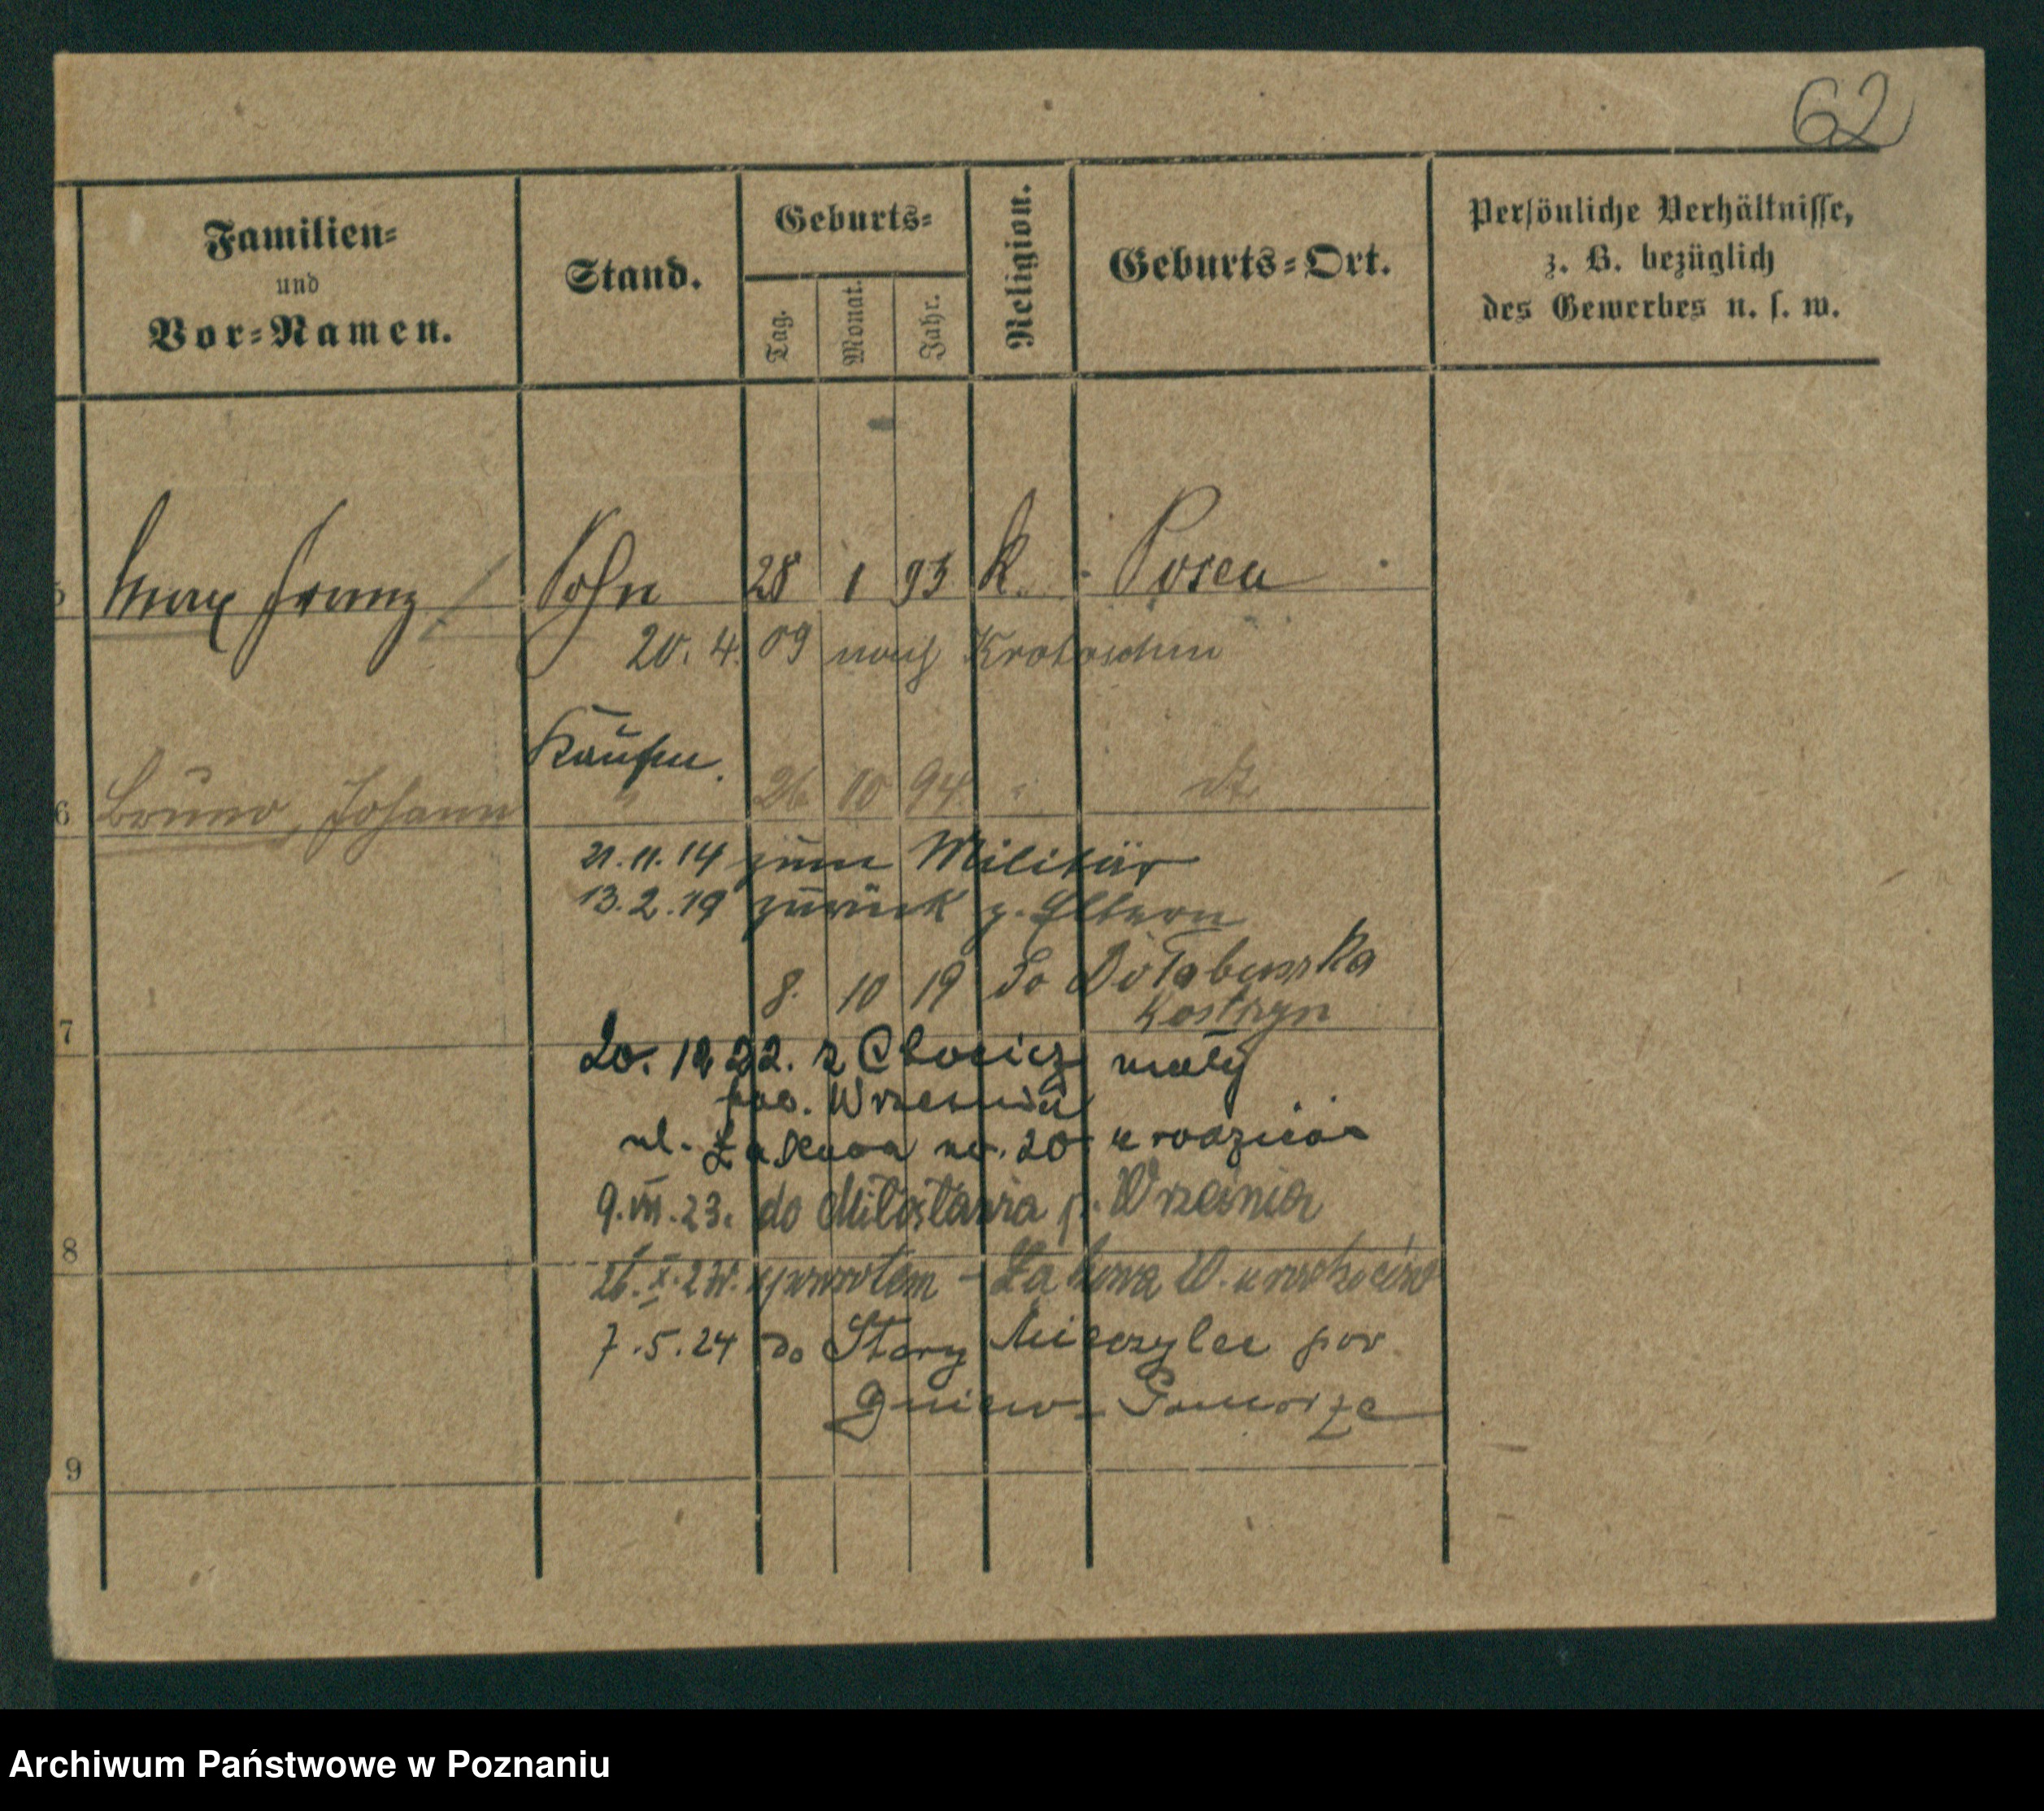 62
Familien=
und
Vor=Namen.
Stand.
Geburts=
Tag.
Monat.
Jahr.
Religion.
Geburts=Ort.
Persönliche Verhältnisse,
z. B. bezüglich
des Gewerbes u. s. w.
5 Max Franz Sohn 28 1 93 K. Posen
20. 4. 09 nach Krotoschin
Kaufm.
6 Bruno, Johann " 26 10 94 " dt.
21.11.14 zum Militär
13.2.19 zurück z. Eltern
8. 10 19 do
Kostrzyn
7
20. 12 22. z Chocicz mały
pow. Września
ul. Łąkowa no. 20 u rodziców
9.VII.23. do Miłosławia p. Września
8
26.X.23. z powrotem - Łąkowa 20. u rodziców
7.5.24 do Stary pow.
Gniew - Pomorze
9
Archiwum Państwowe w Poznaniu